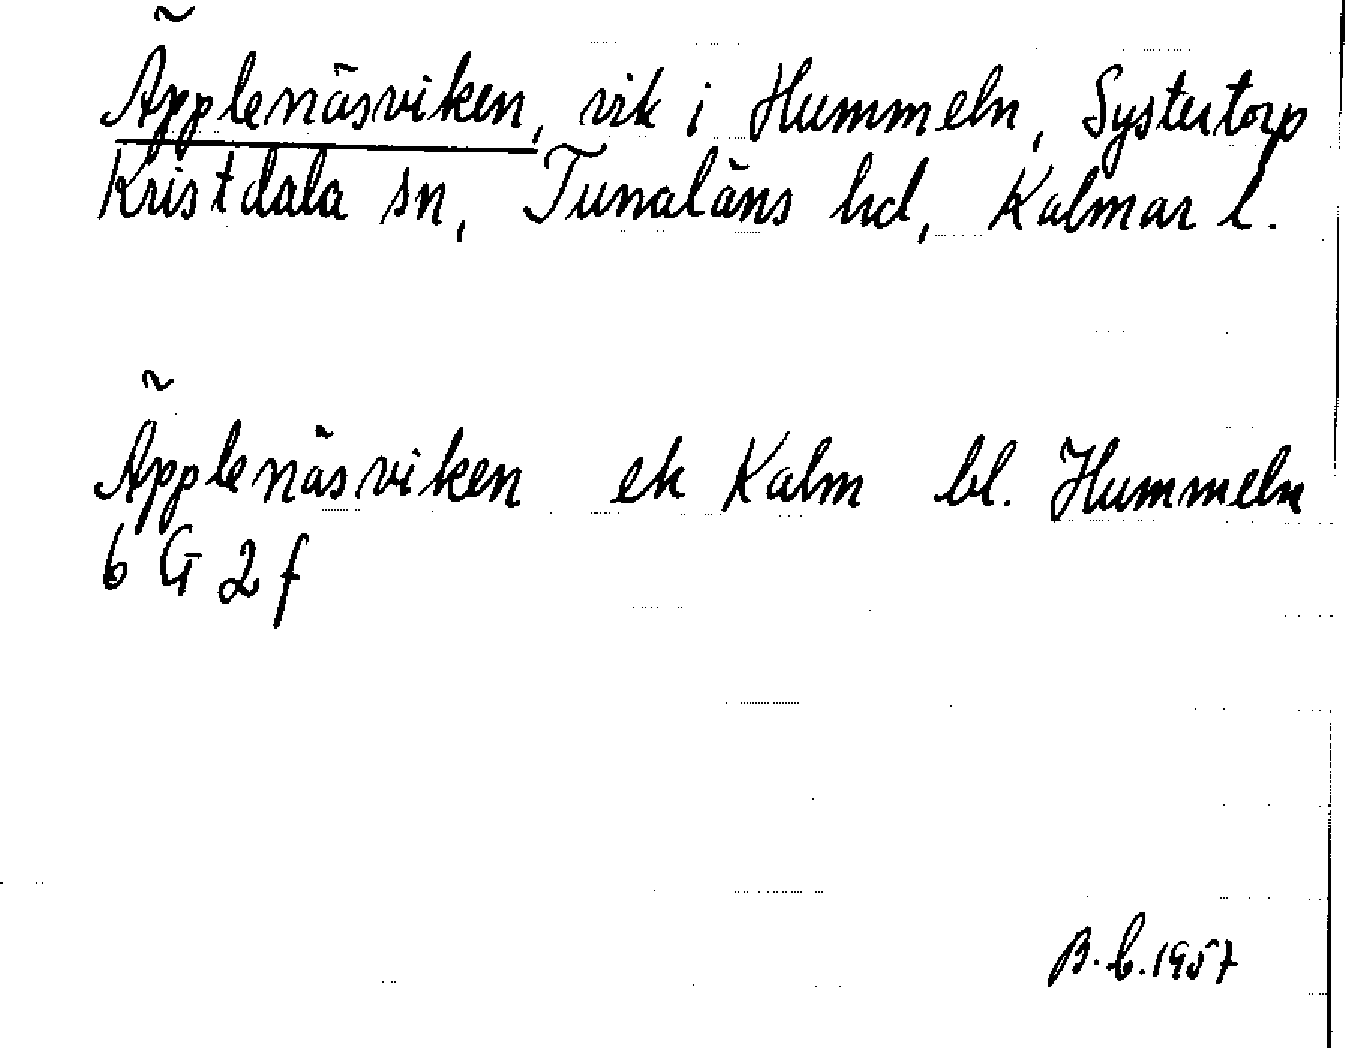 Äpplenäsviken, vik i Hummeln, Systertorp
Kristdala sn, Tunaläns hd, Kalmar l.
Äpplenäsviken ek Kalm bl. Hummeln
6 G 2 f
B.L. 1957